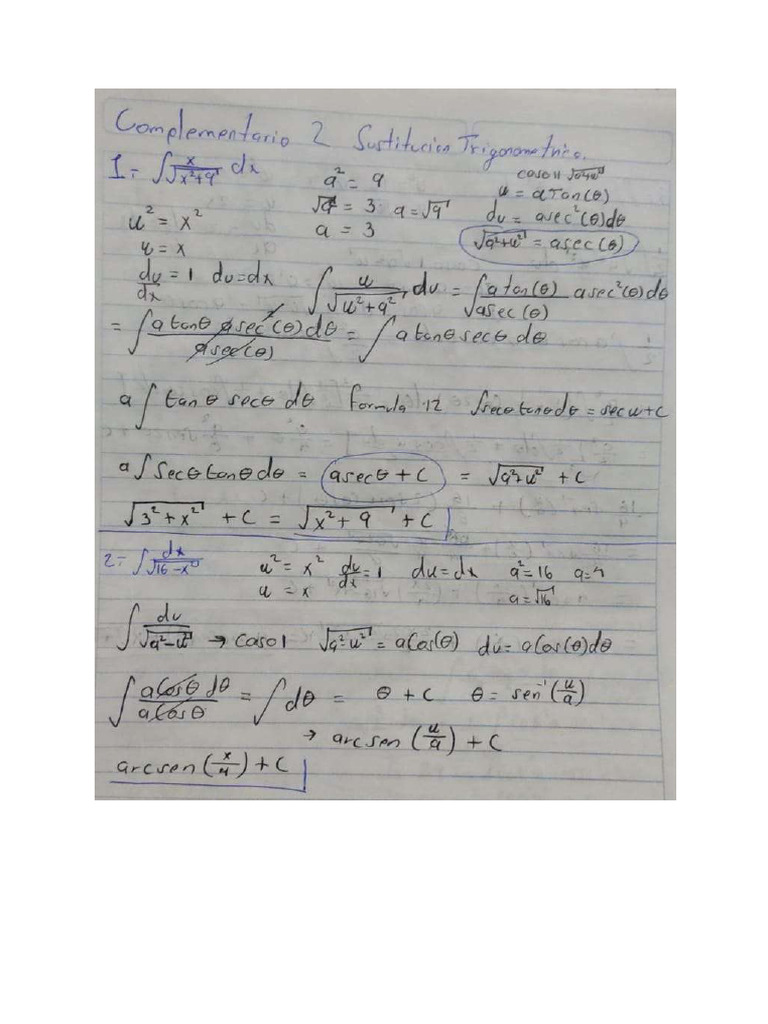 Complementario 2 Sustitucion Trigonometrica.
1.- ∫ x/√(x²+9) dx
a² = 9
caso II √(a²+u²)
u = a Tan(θ)
√a² = 3 a = √9
du = a sec²(θ)dθ
u² = x²
a = 3
√(a²+u²) = a sec(θ)
u = x
du/dx = 1 du = dx ∫ u/√(u²+a²) du = ∫ a tan(θ) a sec²(θ)dθ / a sec(θ)
= ∫ a tanθ a sec²(θ)dθ / a sec(θ) = ∫ a tanθ secθ dθ
a ∫ tanθ secθ dθ formula 12 ∫secθ tanθ dθ = sec u + C
a ∫ secθ tanθ dθ = a secθ + C = √(a²+u²) + C
√(3²+x²) + C = √(x²+9) + C
2.- ∫ dx/√(16-x²) u² = x² du/dx = 1 du = dx a² = 16 a = 4
u = x a = √16
∫ du/√(a²-u²) → caso 1 √(a²-u²) = a Cos(θ) du = a Cos(θ)dθ
∫ a Cosθ dθ / a Cosθ = ∫ dθ = θ + C θ = sen⁻¹(u/a)
→ arcsen (u/a) + C
arcsen (x/4) + C